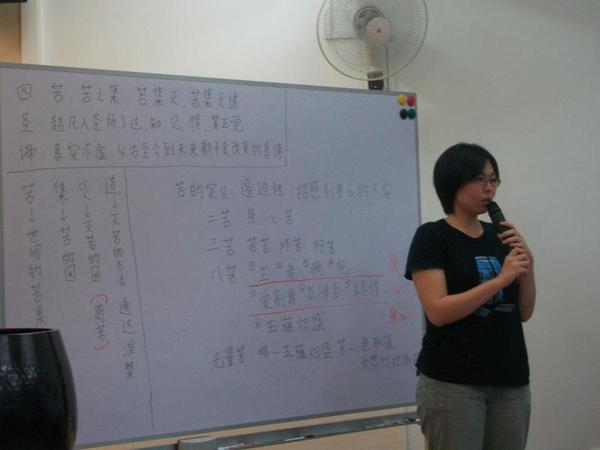 四 苦, 苦之集, 苦集灭, 苦集灭道
圣: 超凡入圣所了达, 知, 见, 怿, 第正觉
谛: 真实不虚, 从古至今到未来都不会改变的真谛
道→灭苦的方法 通达涅槃
灭→灭苦的因(离苦)
集→苦的因
苦→世间的苦果
苦的定义 逼迫性, 招感到身心的不安
二苦 身, 心苦
三苦 苦苦, 坏苦, 行苦
八苦 ①生 ②老 ③病 ④死 身
⑤爱别离 ⑥怨憎会 ⑦求不得 心
⑧五蕴炽盛 身心
无量苦 略~五蕴炽盛苦~色取蕴